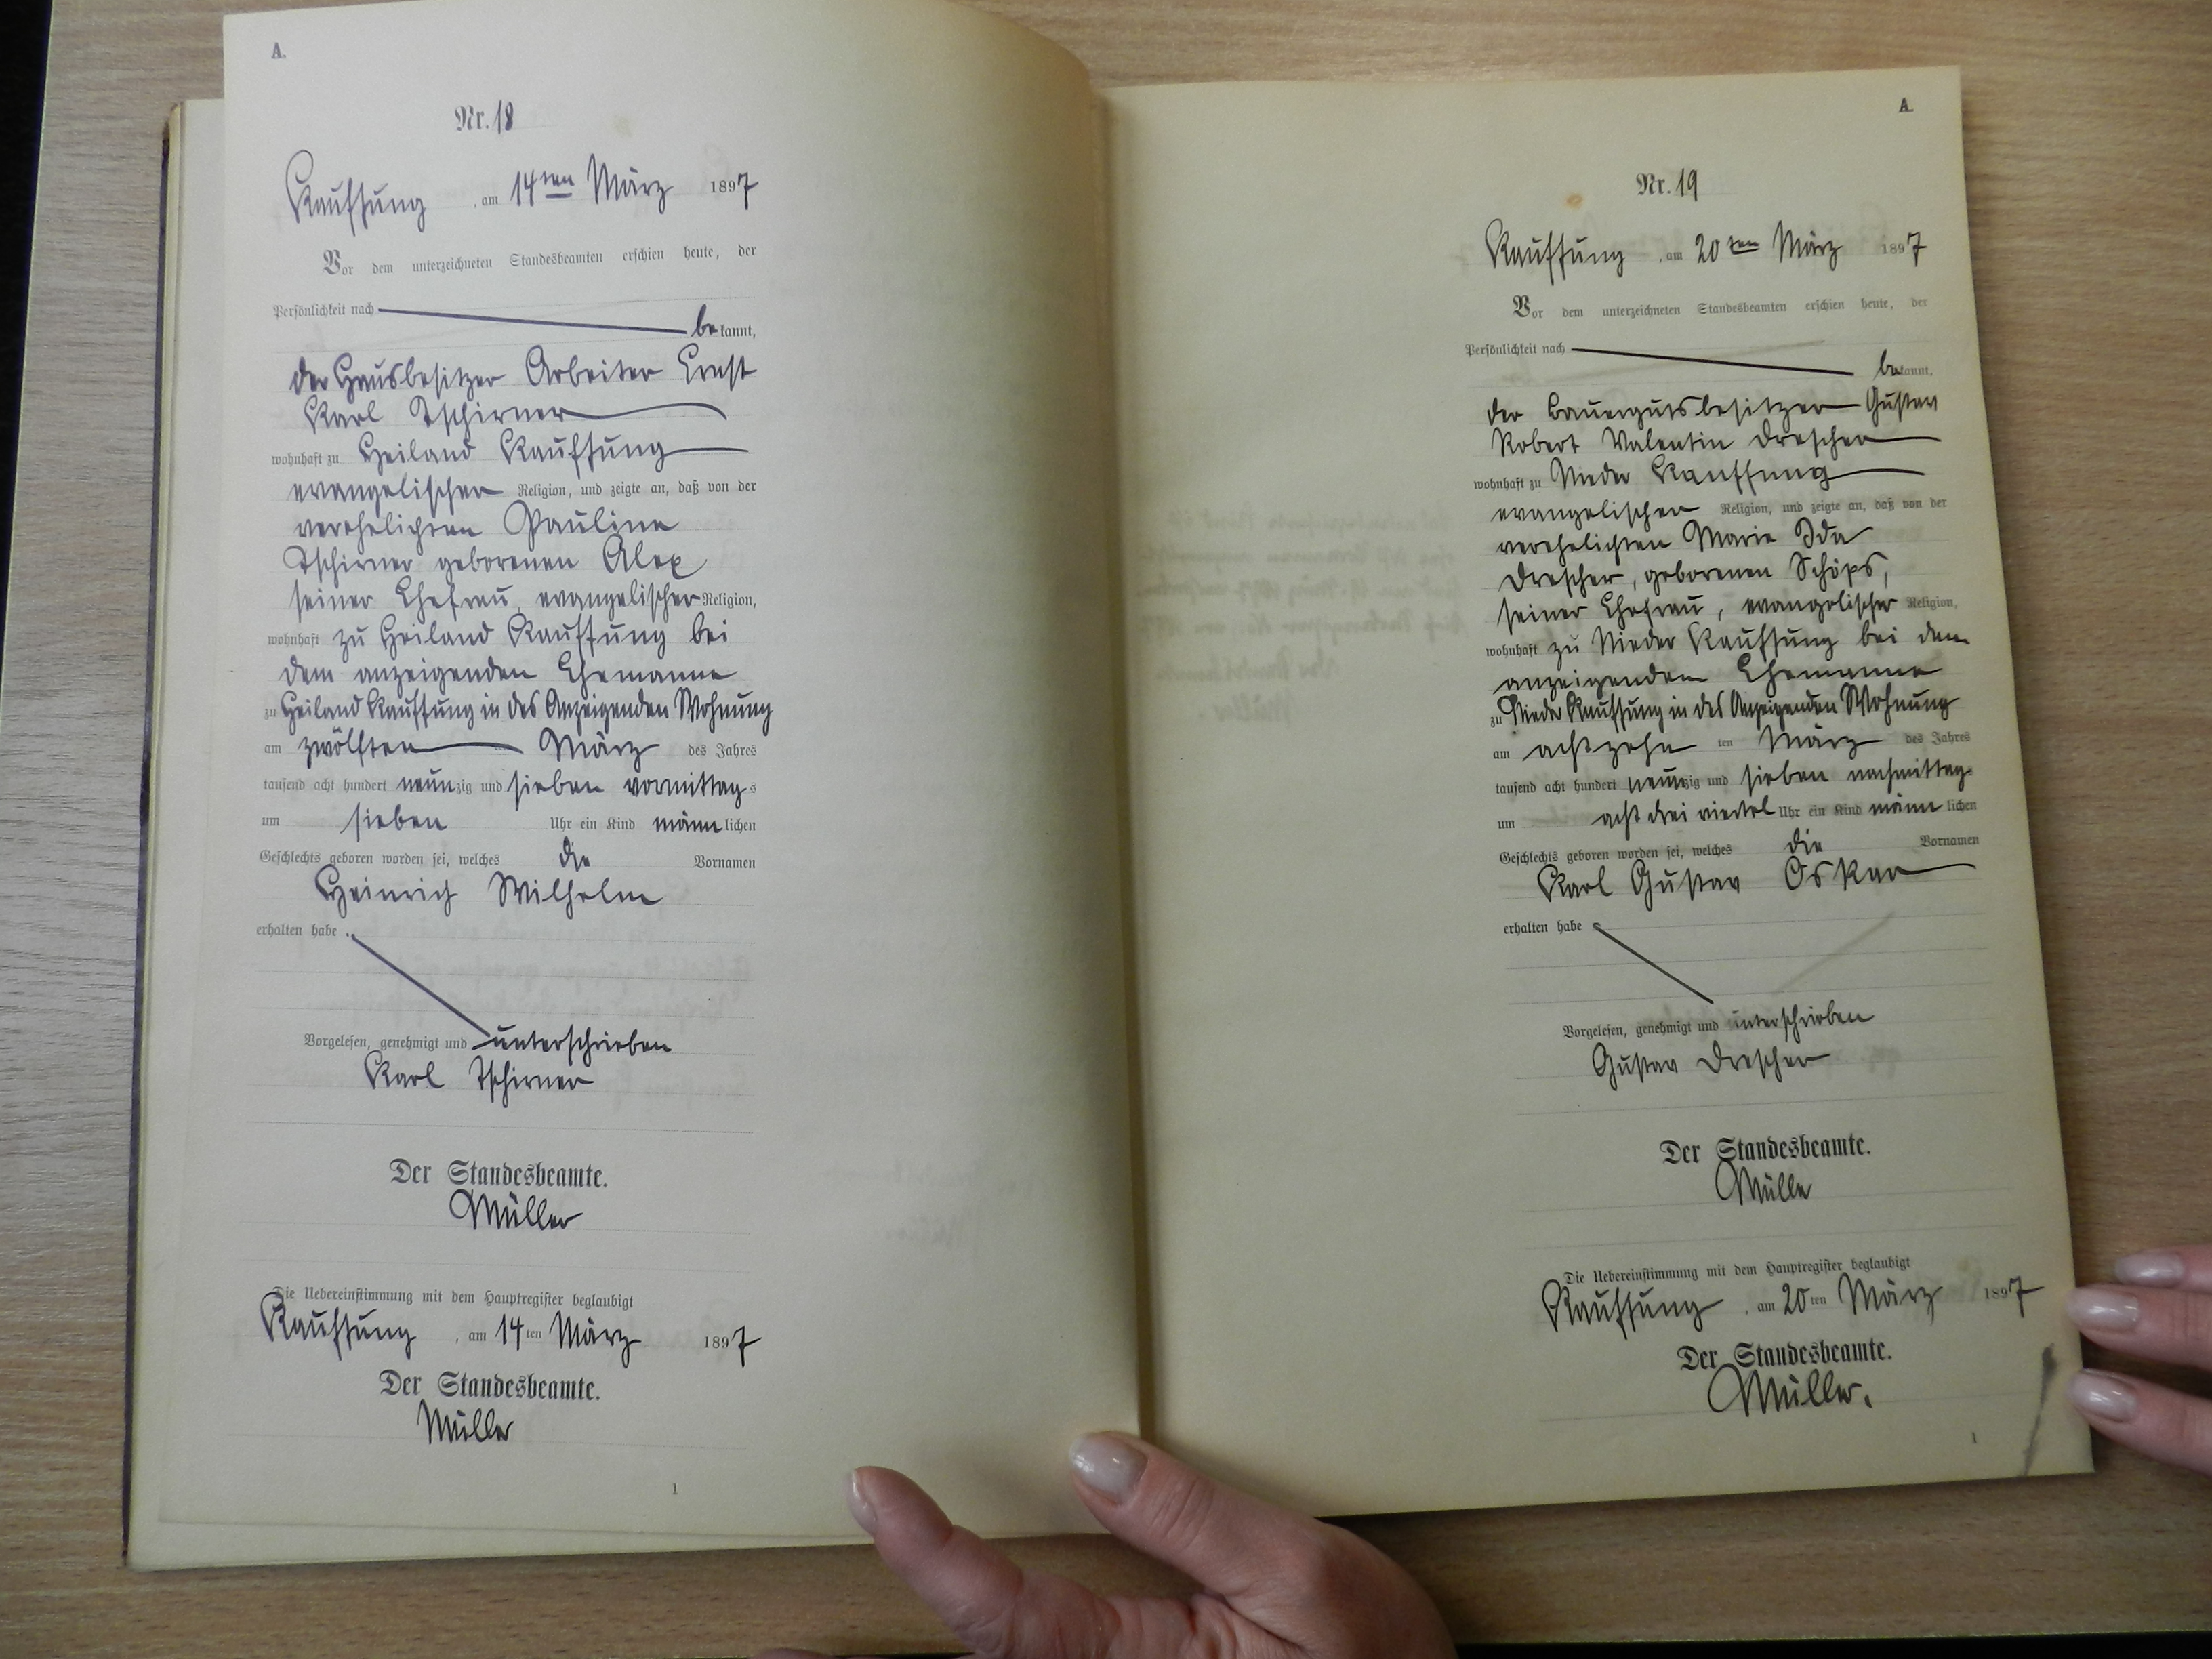 A.
Nr. 18
Kauffung, am 14ten März 1897
Vor dem unterzeichneten Standesbeamten erschien heute, der
Persönlichkeit nach
bekannt,
der Hausbesitzer Arbeiter Ernst
Karl Tschirner
wohnhaft zu Heiland Kauffung
evangelischer Religion, und zeigte an, daß von der
verehelichten Pauline
Tschirner geborenen Alex
seiner Ehefrau, evangelischer Religion,
wohnhaft zu Heiland Kauffung bei
dem anzeigenden Ehemanne
zu Heiland Kauffung in des Anzeigenden Wohnung
am zwölften März des Jahres
tausend acht hundert neunzig und sieben vormittags
um sieben Uhr ein Kind männlichen
Geschlechts geboren worden sei, welches die Vornamen
Heinrich Wilhelm
erhalten habe.
Vorgelesen, genehmigt und unterschrieben
Karl Tschirner
Der Standesbeamte.
Müller
Die Uebereinstimmung mit dem Hauptregister beglaubigt
Kauffung, am 14ten März 1897
Der Standesbeamte.
Müller
1
A.
Nr. 19
Kauffung, am 20ten März 1897
Vor dem unterzeichneten Standesbeamten erschien heute, der
Persönlichkeit nach
bekannt,
der Bauergutsbesitzer Gustav
Robert Valentin Drescher
wohnhaft zu Nieder Kauffung
evangelischer Religion, und zeigte an, daß von der
verehelichten Marie Ida
Drescher, geborenen Schöps,
seiner Ehefrau, evangelischer Religion,
wohnhaft zu Nieder Kauffung bei dem
anzeigenden Ehemanne
zu Nieder Kauffung in des Anzeigenden Wohnung
am achtzehn ten März des Jahres
tausend acht hundert neunzig und sieben nachmittags
um acht drei viertel Uhr ein Kind männlichen
Geschlechts geboren worden sei, welches die Vornamen
Karl Gustav Oskar
erhalten habe
Vorgelesen, genehmigt und unterschrieben
Gustav Drescher
Der Standesbeamte.
Müller
Die Uebereinstimmung mit dem Hauptregister beglaubigt
Kauffung, am 20ten März 1897
Der Standesbeamte.
Müller.
1